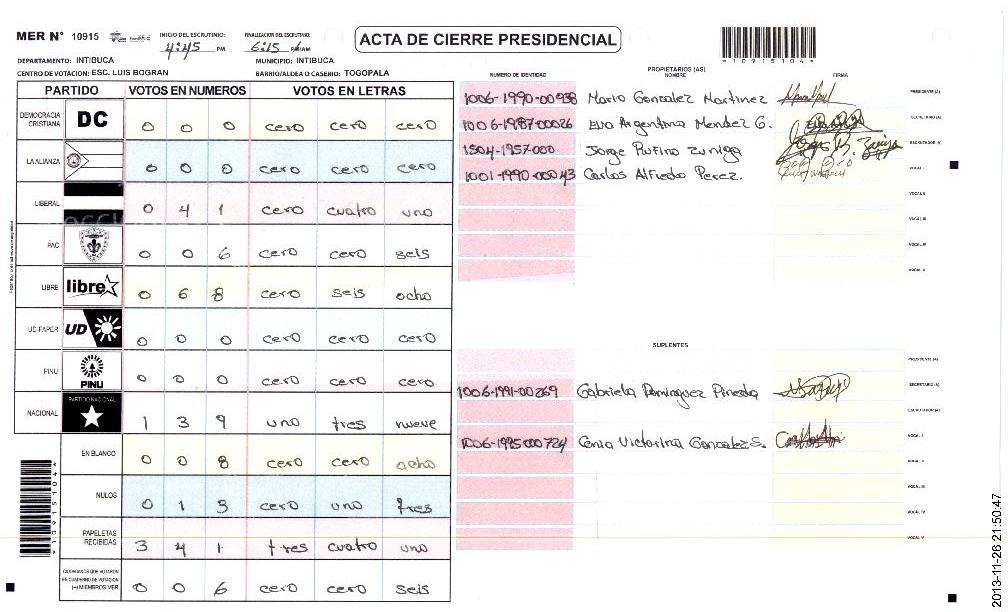 MER N° 10915
INICIO DEL ESCRUTINIO:
4:45 PM
FINALIZACION DEL ESCRUTINIO:
6:15
ACTA DE CIERRE PRESIDENCIAL
*10915104*
DEPARTAMENTO: INTIBUCA
MUNICIPIO: INTIBUCA
CENTRO DE VOTACION: ESC. LUIS BOGRAN
BARRIO/ALDEA O CASERIO: TOGOPALA
PARTIDO VOTOS EN NUMEROS VOTOS EN LETRAS
DEMOCRACIA CRISTIANA DC 0 0 0 cero cero cero
LA ALIANZA 0 0 0 cero cero cero
LIBERAL 0 4 1 cero cuatro uno
PAC 0 0 6 cero cero seis
LIBRE libre 0 6 8 cero seis ocho
UD-FAPER UD 0 0 0 cero cero cero
PINU PINU 0 0 0 cero cero cero
NACIONAL PARTIDO NACIONAL 1 3 9 uno tres nueve
EN BLANCO 0 0 8 cero cero ocho
NULOS 0 1 3 cero uno tres
PAPELETAS RECIBIDAS 3 4 1 tres cuatro uno
CIUDADANOS QUE VOTARON EN CUADERNO DE VOTACION (+) MIEMBROS MER 0 0 6 cero cero seis
PROPIETARIOS (AS)
NUMERO DE IDENTIDAD NOMBRE FIRMA
1006-1990-00938 Mario Gonzalez Martinez PRESIDENTE (A)
1006-1987-00026 Eva Argentina Mendez G. SECRETARIO (A)
1504-1957-000 Jorge Rufino Zuniga ESCRUTADOR (A)
1001-1990-00043 Carlos Alfredo Perez. VOCAL I
VOCAL II
VOCAL III
VOCAL IV
VOCAL V
SUPLENTES
PRESIDENTE (A)
1006-1991-00269 Gabriela Dominguez Pineda SECRETARIO (A)
ESCRUTADOR (A)
1006-1985-000724 Cenia Victorina Gonzales S. VOCAL I
VOCAL II
VOCAL III
VOCAL IV
VOCAL V
*10915104*
2013-11-26 21:50:47